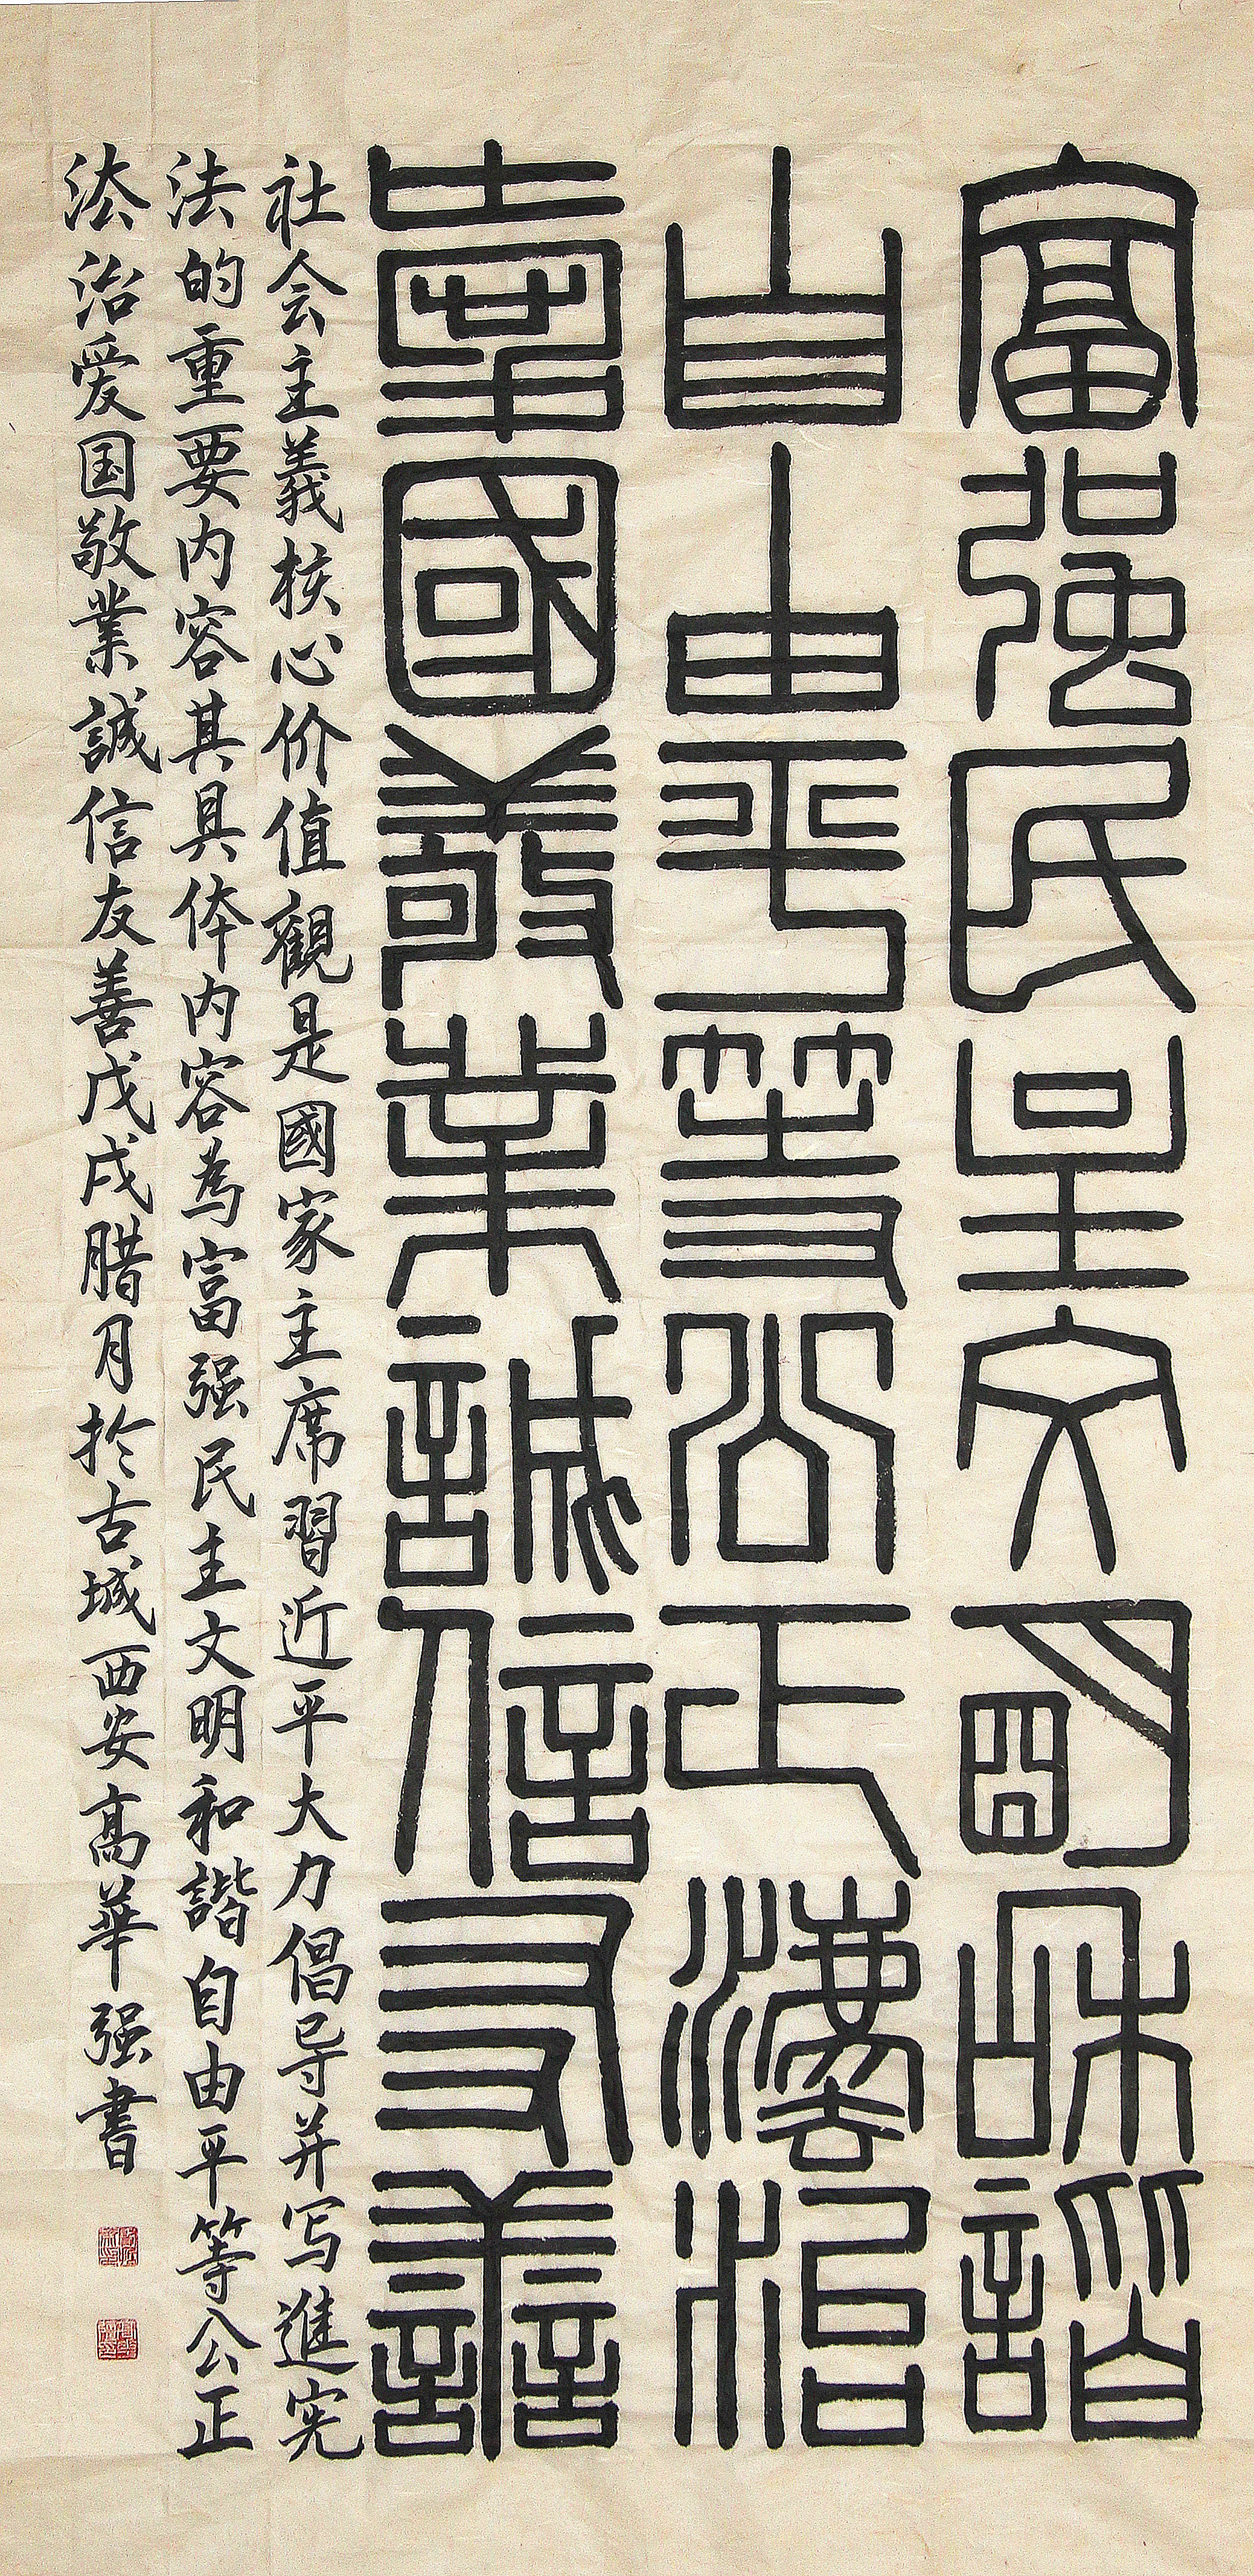 富强民主文明和諧
自由平等公正灋治
愛國敬業誠信友善
社会主義核心价值觀是國家主席習近平大力倡导并写進宪
法的重要内容其具体内容為富强民主文明和諧自由平等公正
法治爱国敬業誠信友善戊戌腊月於古城西安高華强書